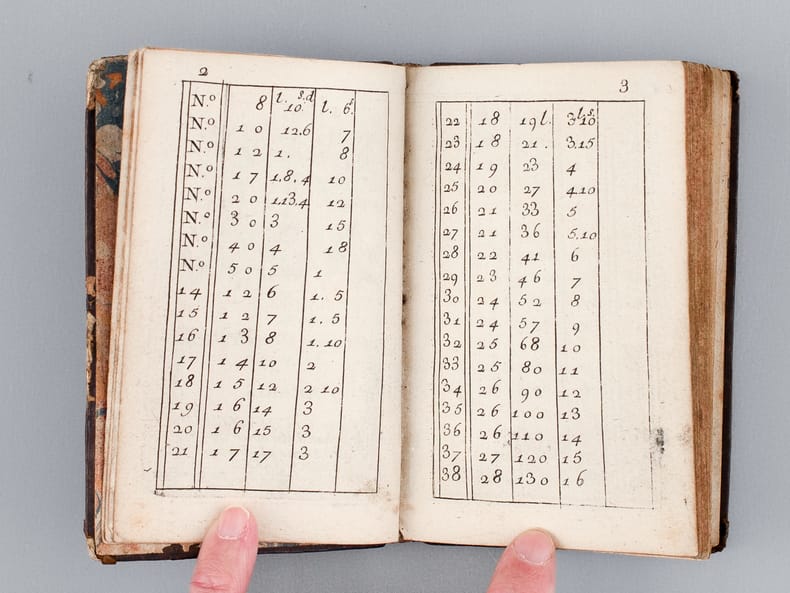 2
N.º 8 l. s. d 10 l. s. 6
N.º 10 12.6 7
N.º 12 1. 8
N.º 17 1.8.4 10
N.º 20 1.13.4 12
N.º 30 3 15
N.º 40 4 18
N.º 50 5 1
14 12 6 1.5
15 12 7 1.5
16 13 8 1.10
17 14 10 2
18 15 12 2 10
19 16 14 3
20 16 15 3
21 17 17 3
3
22 18 19 l. l. s. 3 10
23 18 21. 3.15
24 19 23 4
25 20 27 4.10
26 21 33 5
27 21 36 5.10
28 22 41 6
29 23 46 7
30 24 52 8
31 24 57 9
32 25 68 10
33 25 80 11
34 26 90 12
35 26 100 13
36 26 110 14
37 27 120 15
38 28 130 16